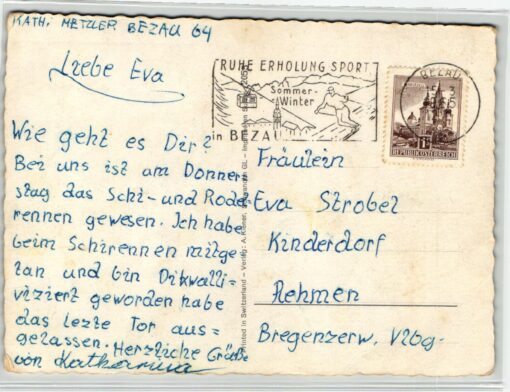 KATH. METZLER BEZAU 64
Liebe Eva
Wie geht es Dir?
Bei uns ist am Donners
tag das Schi- und Rodel
rennen gewesen. Ich habe
beim Schirennen mitge
tan und bin Dikwalli-
viziert geworden habe
das lezte Tor aus=
gelassen. Herzliche Grüße
von Katharina
RUHE ERHOLUNG SPORT
Sommer-
Winter
in BEZAU
BEZAU
REPUBLIK ÖSTERREICH
Printed in Switzerland – Verlag: A.
Fräulein
Eva Strobel
Kinderdorf
Rehmen
Bregenzerw. Vlbg.